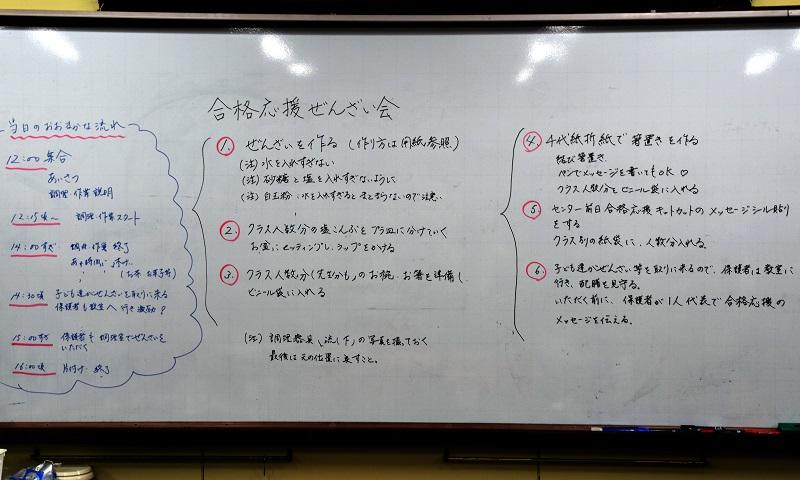 合格応援ぜんざい会
当日のおおまかな流れ
12:00 集合
あいさつ
調理・作業説明
12:15頃〜 調理・作業スタート
14:00すぎ 調理・作業 終了
(お茶・お菓子等)
14:30頃 子ども達がぜんざいを取りに来る
保護者も教室へ行き激励!
15:00すぎ 保護者も調理室でぜんざいを
いただく
16:00頃 片付け・終了
1. ぜんざいを作る (作り方は用紙参照)
(注) 水を入れすぎない
(注) 砂糖と塩を入れすぎないように
(注) 白玉粉:水を入れすぎるとまとまらないので注意
2. クラス人数分の塩こんぶをプラ皿に分けていく
お盆にセッティングし、ラップをかける
3. クラス人数分(先生かも)のお椀・お箸を準備し、
ビニール袋に入れる
(注) 調理器具、流し(下)の写真を撮っておく
最後は元の位置に戻すこと。
4. 千代紙折紙で箸置きを作る
結び箸置き
ペンでメッセージを書いてもOK♡
クラス人数分をビニール袋に入れる
5. センター前日合格応援キットカットのメッセージシール貼り
をする
クラス別の紙袋に、人数分入れる。
6. 子ども達がぜんざい等を取りに来るので、保護者は教室に
行き、配膳を見守る。
いただく前に、保護者が1人代表で合格応援の
メッセージを伝える。